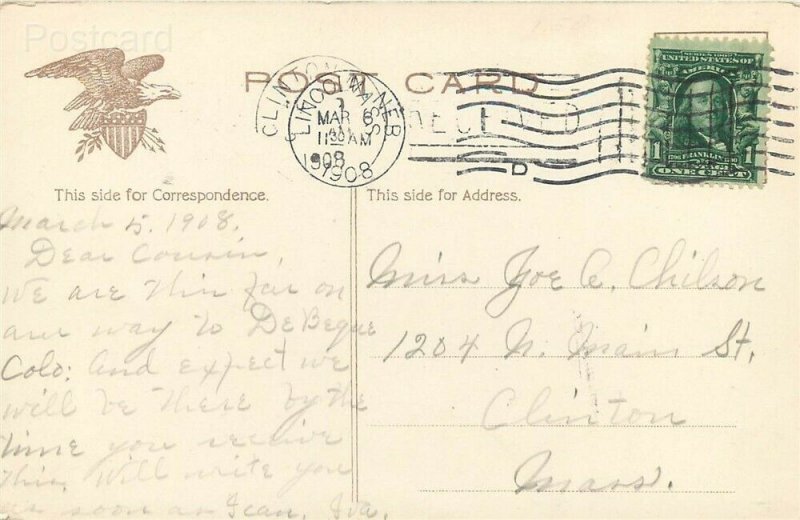 Postcard
POST CARD
CLINTON MASS
LINCOLN NEB
MAR 6
11 30 AM
1908
1908
RECEIVED
D
SERIES 1902
UNITED STATES OF
AMERICA
1 FRANKLIN 1
ONE CENT
This side for Correspondence.
This side for Address.
March 5, 1908.
Dear Cousin,
We are this far on
our way to De Beque
Colo: and expect we
will be there by the
time you receive
this. Will write you
as soon as I can, Iva.
Miss Joe C. Chilson
1204 N. Main St.
Clinton
Mass.